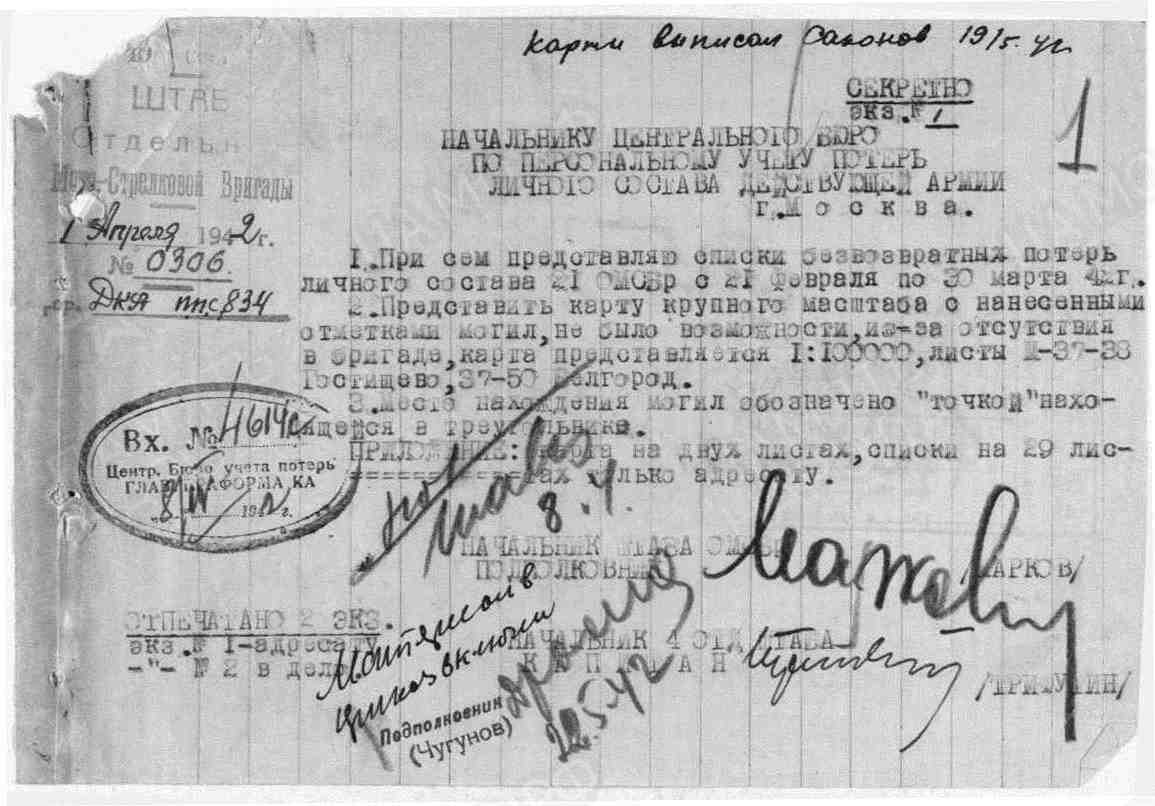 карты выписал Сазонов 19/5.42г
СЕКРЕТНО
экз.№ 1
1
ШТАБ
Отдельн
Мото-Стрелковой Бригады
1 Апреля 1942г.
№ 0306.
ДКА ппс 834
НАЧАЛЬНИКУ ЦЕНТРАЛЬНОГО БЮРО
ПО ПЕРСОНАЛЬНОМУ УЧЕТУ ПОТЕРЬ
ЛИЧНОГО СОСТАВА ДЕЙСТВУЮЩЕЙ АРМИИ
г.Москва.
1.При сем представляю списки безвозвратных потерь
личного состава 21 ОМСБР с 21 февраля по 30 марта 42г.
2.Представить карту крупного масштаба с нанесенными
отметками могил,не было возможности,из-за отсутствия
в бригаде,карта представляется 1:100000,листы М-37-38
Гостищево,37-50 Белгород.
3.Место нахождения могил обозначено "точкой"нахо-
ящейся в треугольнике.
ПРИЛОЖЕНИЕ: карта на двух листах,списки на 29 лис-
тах только адресату.
Вх. № 4614с
Центр. Бюро учета потерь
ГЛАВУПРАФОРМА КА
"8/IV 1942г.
8.4.
НАЧАЛЬНИК ШТАБА ОМСБР
ПОДПОЛКОВНИК
/МАРКОВ/
ОТПЕЧАТАНО 2 ЭКЗ.
экз.№ 1-адресату
-"- № 2 в дело
НАЧАЛЬНИК 4 ОТД.ШТАБА
КАПИТАН
/ТРИФУТИН/
Материал в
приказ включен
Подполковник
(Чугунов)
22.5.42